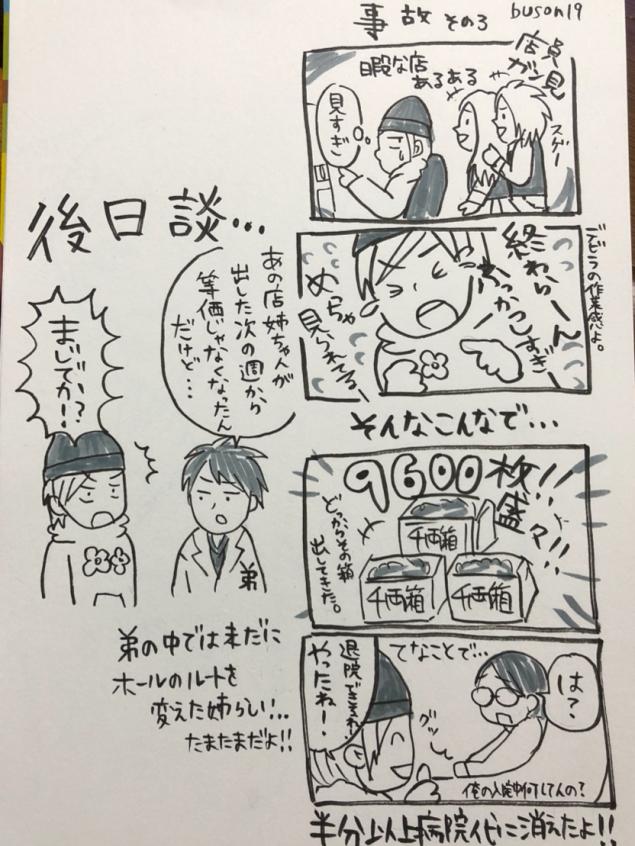 事故 その3
buson19
店員
ガン見
暇な店
あるある
スゲー
見すぎ
デビラの作業感よ。
終わらーん
ぶっかっこすぎ
めちゃ
見られてる
そんなこんなで…
9600枚!!
盛々!!
どっからその箱
出してきた。
千両箱
千両箱
千両箱
てなことで…
退院できそうね!
やったね!
は?
グッ
俺の入院中何してんの?
半分以上病院代に消えたよ!!
後日談…
あの店姉ちゃんが
出した次の週から
等価じゃなくなったん
だけど…
まじでか!?
弟
弟の中では未だに
ホールのルートを
変えた姉らしい…
たまたまだよ!!